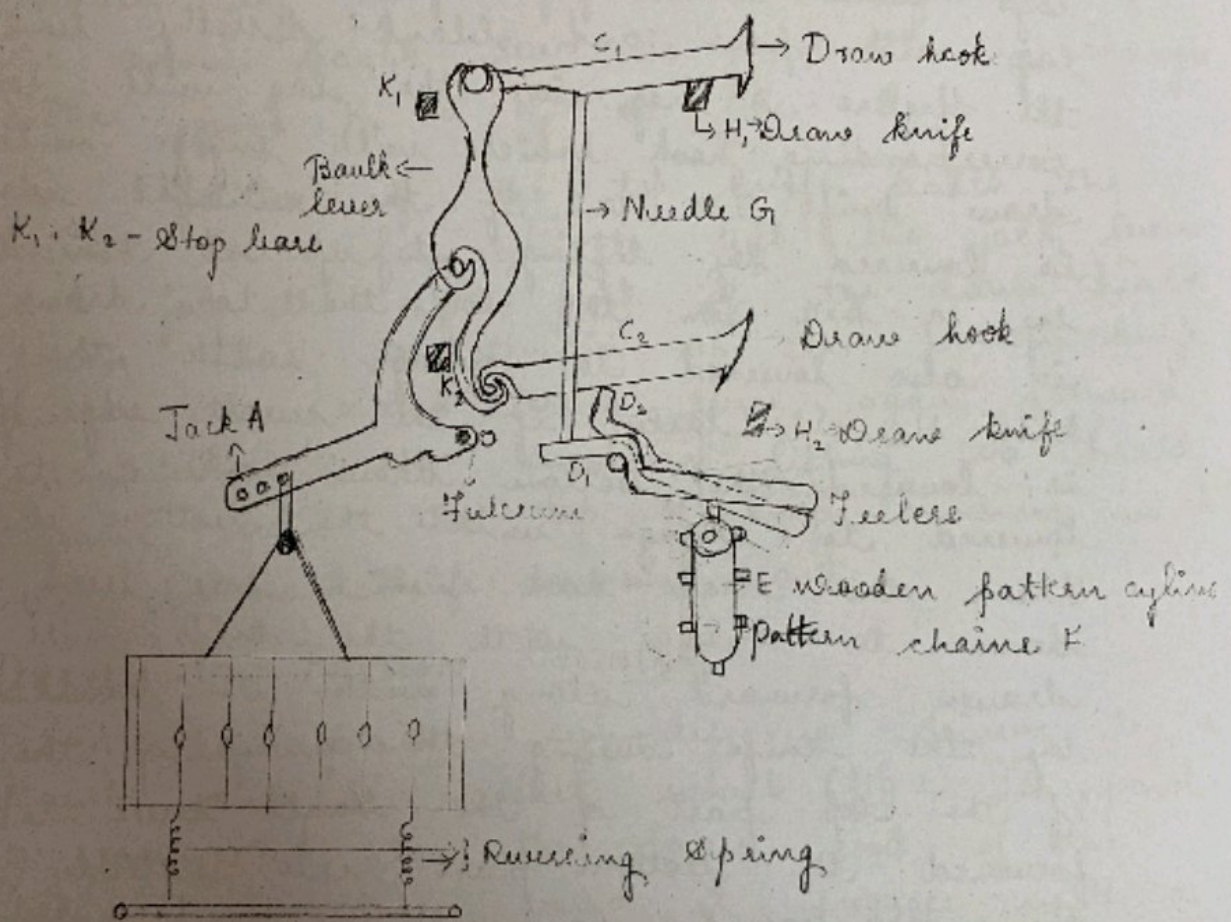 C₁
→ Draw hook
K₁
↳ H₁→Draw knife
Baulk ←
lever
→ Needle G
K₁, K₂ - Stop bars
C₂
Draw hook
K₂
D₂
→ H₂→Draw knife
Jack A
D₁
Fulcrum
Feelers
E wooden pattern cylin
Pattern chaine F
→ Reversing Spring